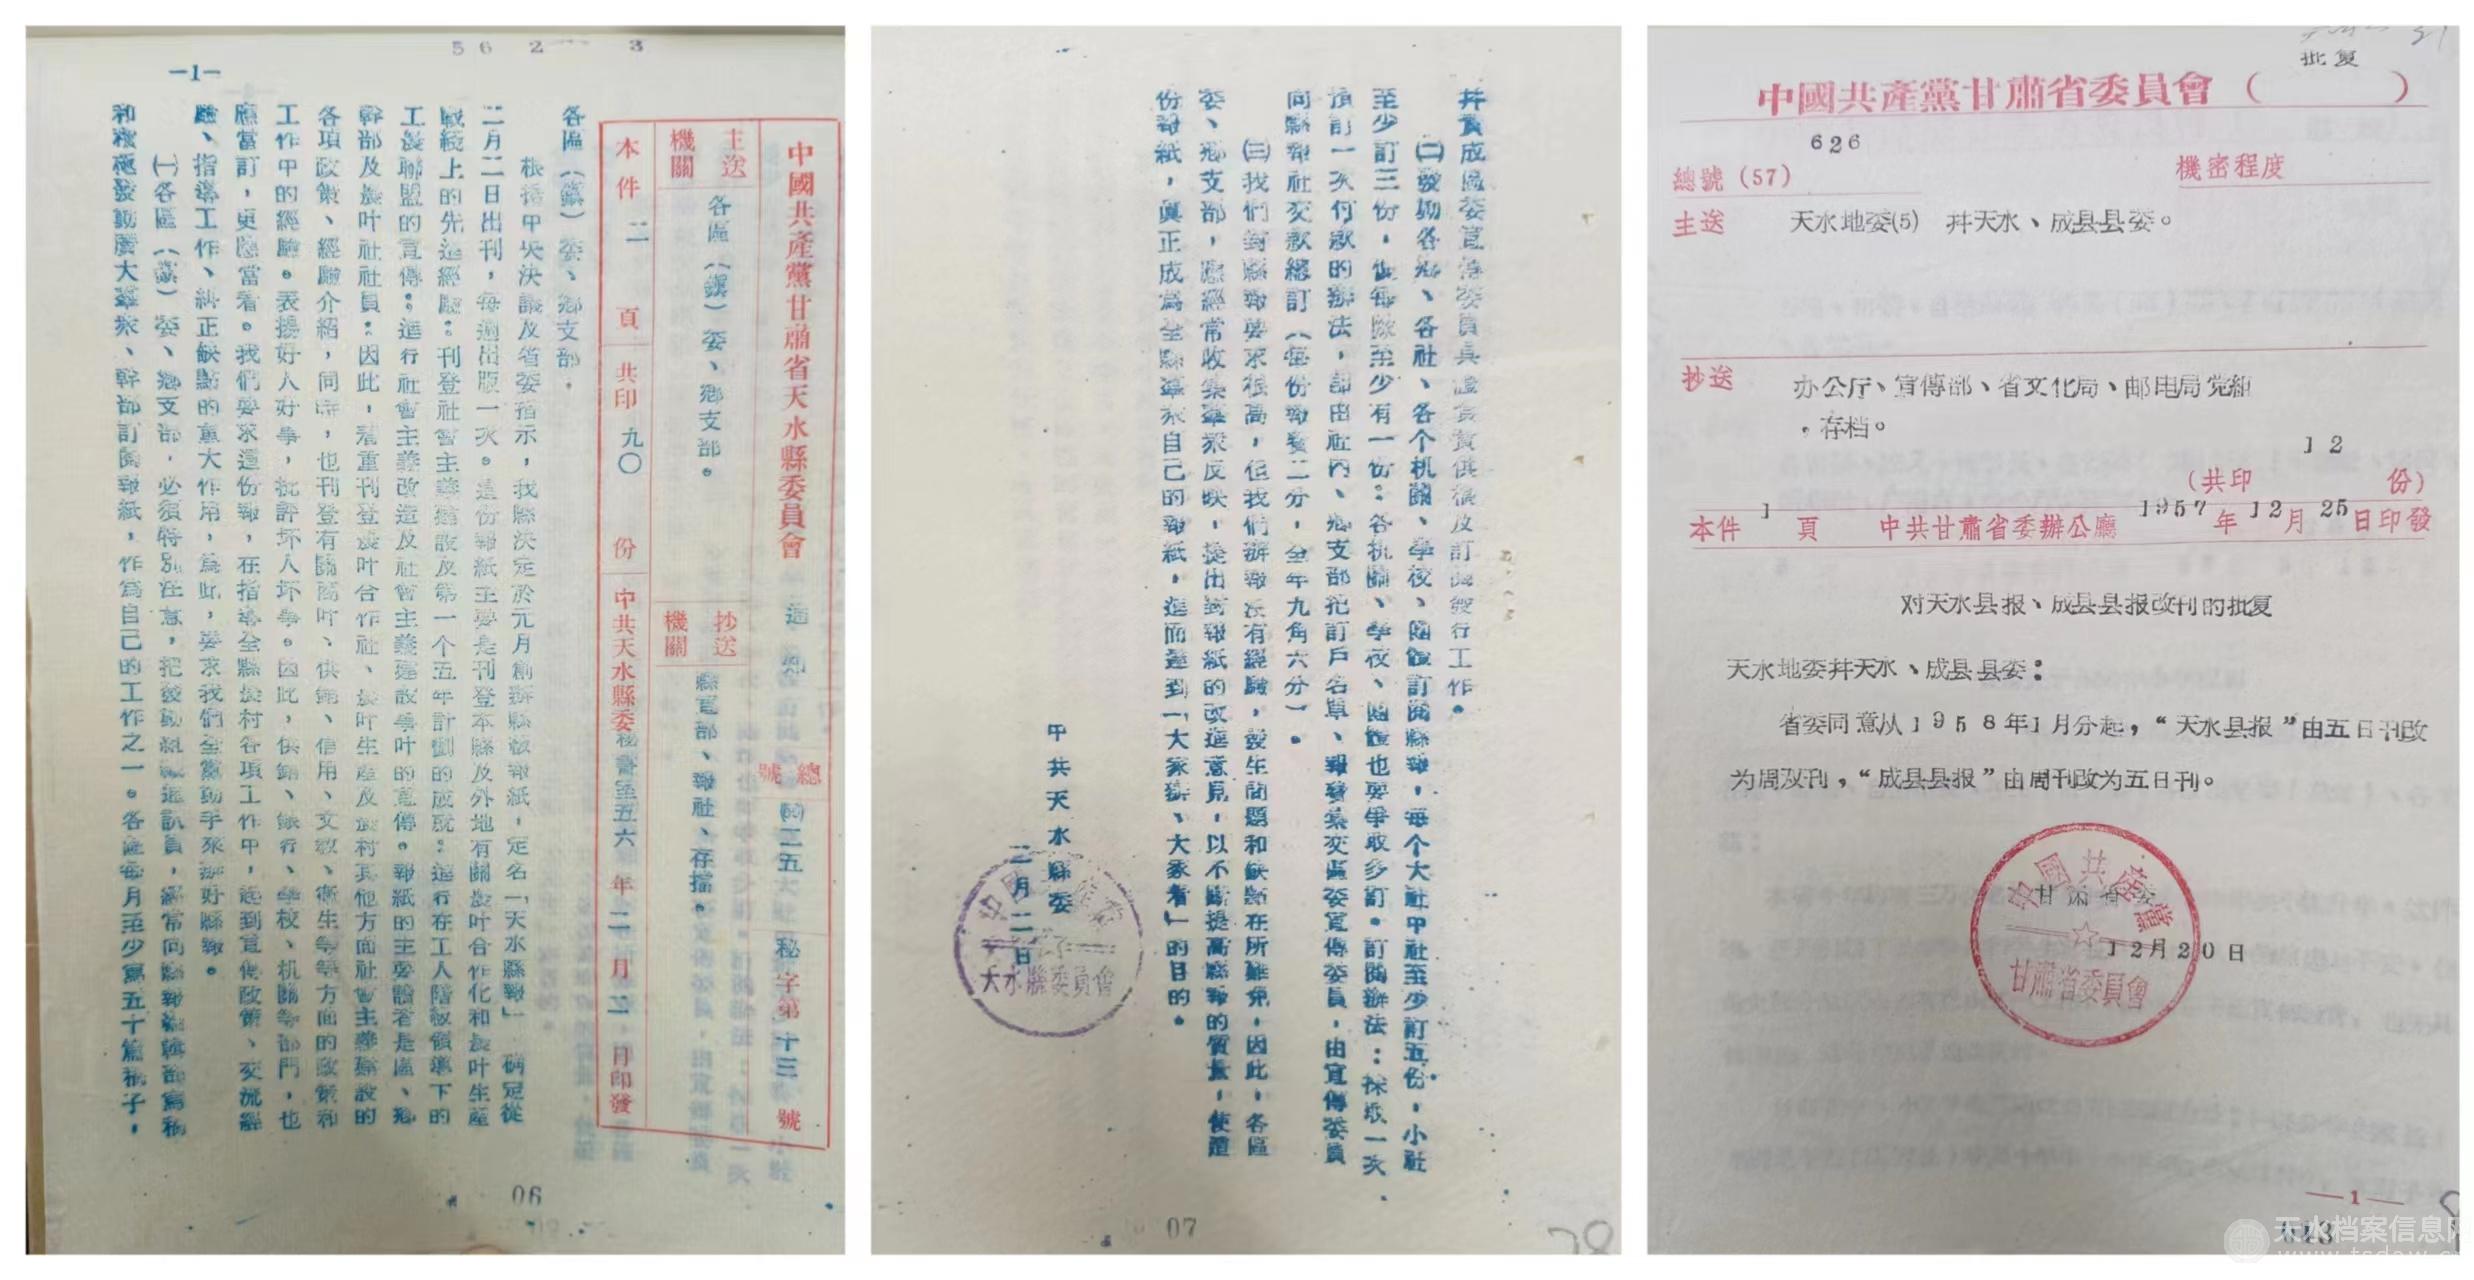 56 2 3
-1-
中國共產黨甘肅省天水縣委員會 通知 總號(56)二五 秘字第十三號
主送機關 各區(鎮)委、鄉支部。 抄送機關 縣宣部、報社、存檔。
本件二頁 共印九〇份 中共天水縣委秘書室五六年二月二日印發
各區(鎮)委、鄉支部:
根據中央決議及省委指示,我縣決定於元月創辦縣級報紙,定名「天水縣報」 确定從
二月二日出刊,每週出版一次。這份報紙主要是刊登本縣及外地有關農叶合作化和農叶生產
戰綫上的先進經驗:刊登社會主義建設及第一个五年計劃的成就:進行在工人階級領導下的
工農聯盟的宣傳:進行社會主義改造及社會主義建設事叶的宣傳。報紙的主要讀者是區、鄉
幹部及農叶社社員:因此,着重刊登農叶合作社、農叶生產及農村其他方面社會主義建設的
各項政策、經驗介紹,同時,也刊登有關商叶、供銷、信用、文教、衛生等等方面的政策和
工作中的經驗。表揚好人好事,批評坏人坏事。因此,供銷、銀行、學校、机關等部門,也
應當訂,更應當看。我們要求這份報,在指導全縣農村各項工作中,起到宣傳政策、交流經
驗、指導工作、糾正缺點的重大作用,為此,要求我們全黨動手來辦好縣報。
㈠各區(鎮)委、鄉支部,必須特別注意,把發動組織通訊員,經常向縣報編輯部寫稿
和積極發動廣大羣衆、幹部訂閱報紙,作為自己的工作之一。各區每月至少寫五十篇稿子,
06
并責成區委宣傳委員具體負責供稿及訂閱發行工作。
㈡發動各鄉、各社、各个机關、學校、團體訂閱縣報,每个大社中社至少訂五份,小社
至少訂三份,俱每隊至少有一份:各机關、學校、團體也要爭取多訂。訂閱辦法:採取一次
預訂一次付款的辦法,即由社內、鄉支部把訂戶名單、報費彙交區委宣傳委員,由宣傳委員
同縣報社交款總訂(每份報費二分,全年九角六分)。
㈢我們對縣報要求很高,但我們辦報沒有經驗,發生問題和缺點在所難免,因此,各區
委、鄉支部,應經常收集羣衆反映,提出對報紙的改進意見,以不斷提高縣報的質量,使這
份報紙,眞正成為全縣羣衆自己的報紙,進而達到「大家辦、大家看」的目的。
中共天水縣委
二月二日
中國共產黨
天水縣委員會
07
78
批复
中國共產黨甘肅省委員會( )
626
總號(57) 機密程度
主送 天水地委(5) 幷天水、成县县委。
抄送 办公厅、宣傳部、省文化局、邮电局党組
,存档。
12
(共印 份)
本件 1 頁 中共甘肅省委辦公廳 1957年12月25日印發
对天水县报、成县县报改刊的批复
天水地委幷天水、成县县委:
省委同意从1958年1月分起,“天水县报”由五日刊改
为周双刊,“成县县报”由周刊改为五日刊。
中國共產黨
甘肃省委
12月20日
甘肅省委員會
—1—
天水档案信息网
www.tsdaw.c